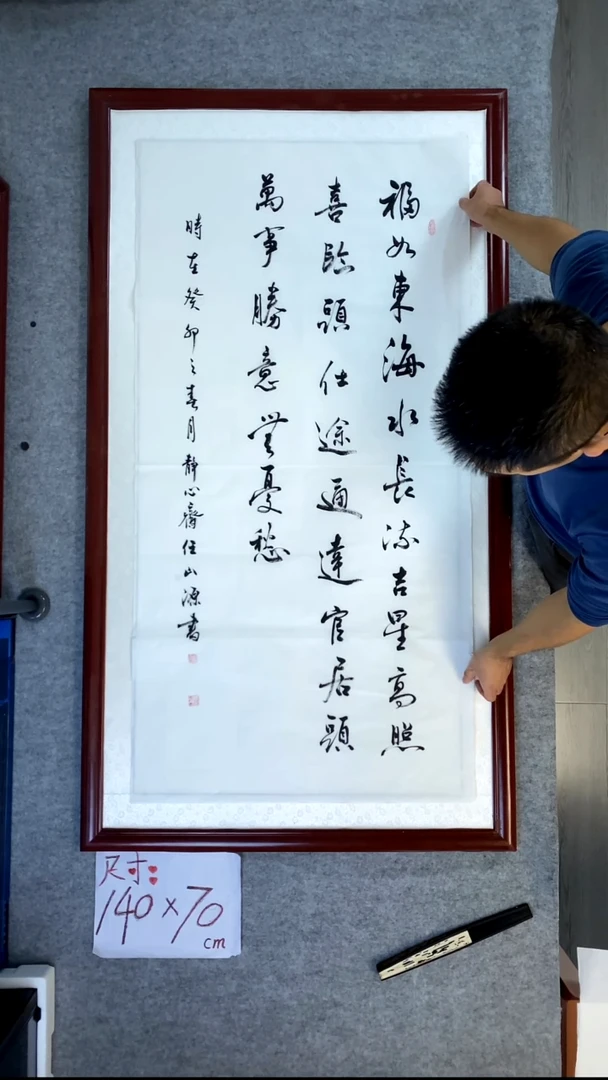 福如東海水長流吉星高照
喜臨頭仕途通達官居頭
萬事勝意無憂愁
時在癸卯之春月靜心齋任山源書
尺寸:
140×70
cm